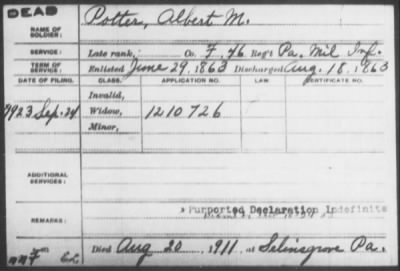 DEAD
NAME OF SOLDIER: Potter, Albert M.
SERVICE: Late rank, Co. F. 46 Reg't Pa. Mil Inf.
TERM OF SERVICE: Enlisted June 29, 1863 Discharged Aug. 18, 1863
DATE OF FILING. CLASS. APPLICATION NO. LAW. CERTIFICATE NO.
Invalid,
1923 Sep. 24 Widow, 1210726
Minor,
ADDITIONAL SERVICES:
REMARKS: Purported Declaration Indefinite
Died Aug 20 1911, at Selinsgrove Pa.